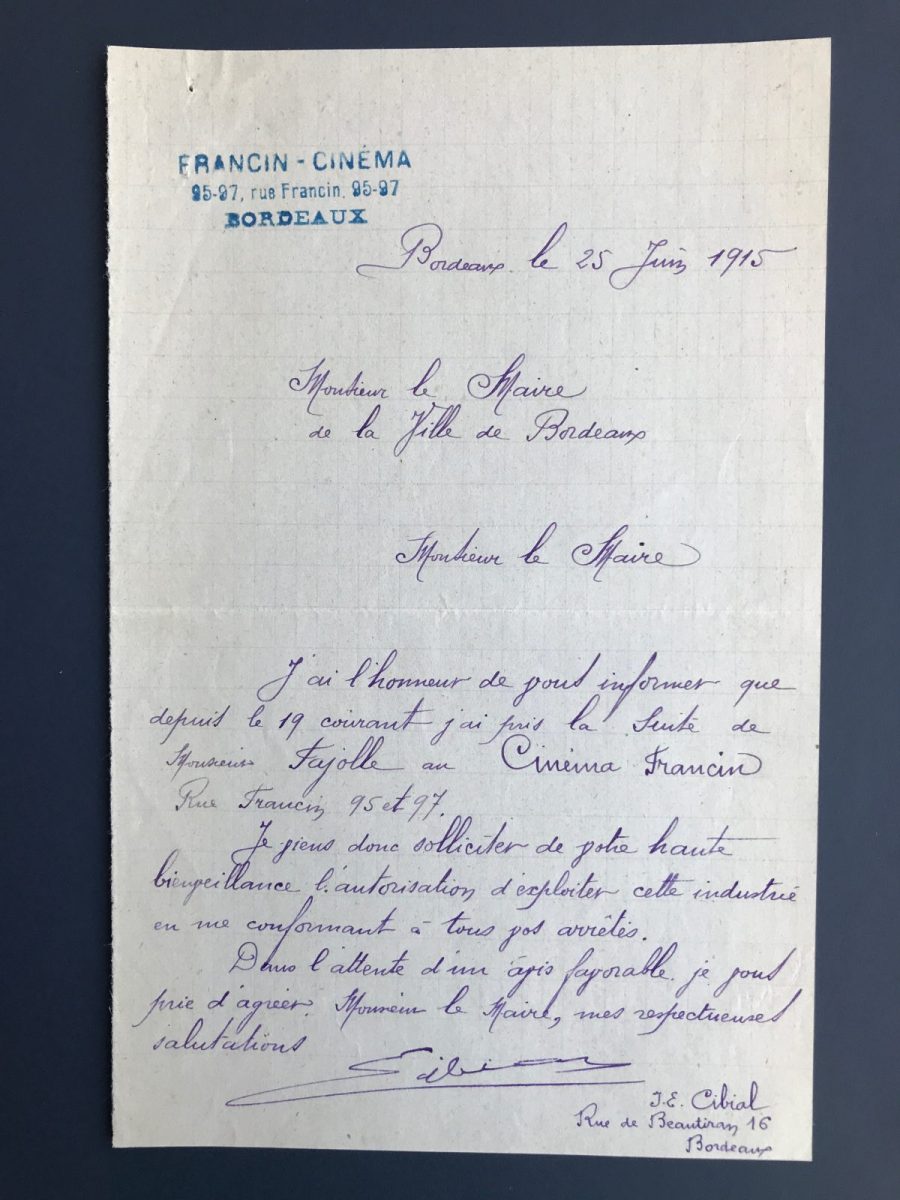 FRANCIN - CINÉMA
95-97, rue Francin, 95-97
BORDEAUX
Bordeaux le 25 Juin 1915
Monsieur le Maire
de la Ville de Bordeaux
Monsieur le Maire
J'ai l'honneur de vous informer que
depuis le 19 courant j'ai pris la suite de
Monsieur Fajolle au Cinéma Francin
Rue Francin 95 et 97.
Je viens donc solliciter de votre haute
bienveillance l'autorisation d'exploiter cette industrie
en me conformant à tous vos arrêtés.
Dans l'attente d'un avis favorable je vous
prie d'agréer, Monsieur le Maire, mes respectueuses
salutations
Cibial
J.E. Cibial
Rue de Beautiran 16
Bordeaux